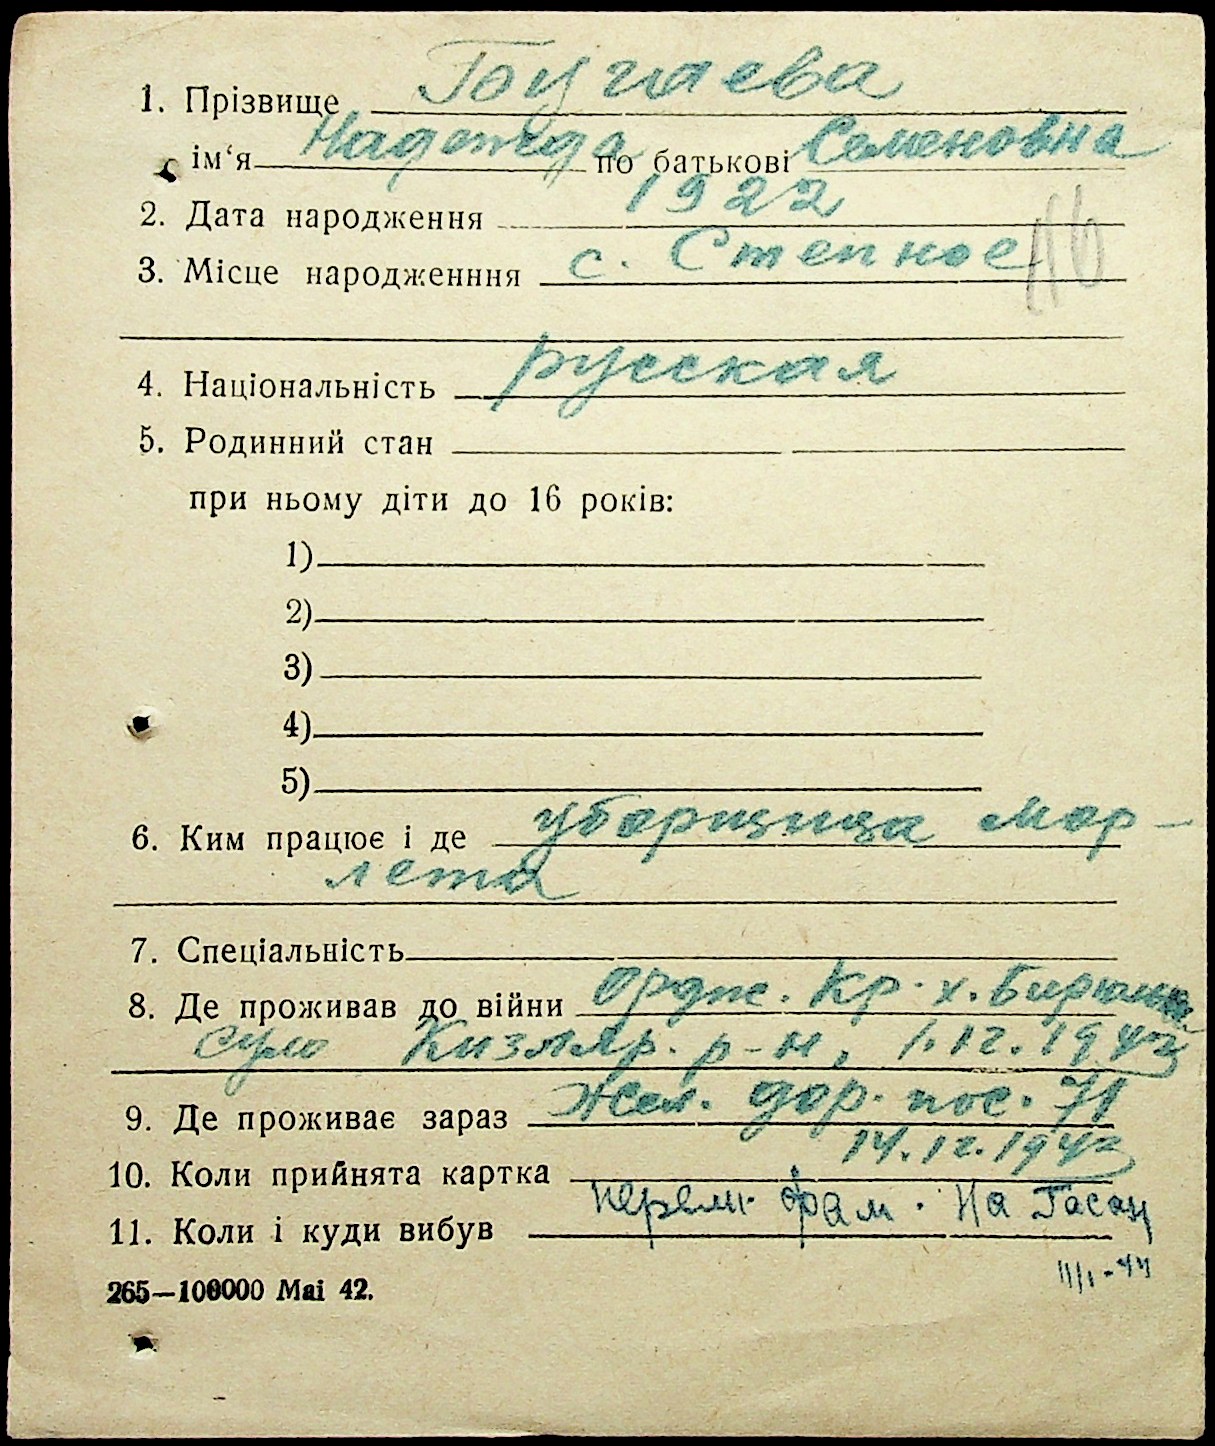 1. Прізвище Бугаева
ім‘я Надежда по батькові Семеновна
2. Дата народження 1922
3. Місце народженння с. Степное
4. Національність русская
5. Родинний стан
при ньому діти до 16 років:
1)
2)
3)
4)
5)
6. Ким працює і де уборщица мор-
лета
7. Спеціальність
8. Де проживав до війни Ордж. Кр. х. Бирюч
Кизляр. р-н, 1.12.1942
9. Де проживає зараз Жел. дор. пос. 71
14.12.1942
10. Коли прийнята картка
11. Коли і куди вибув перем. фам. на Гасан
11/1-44
265—100000 Mai 42.